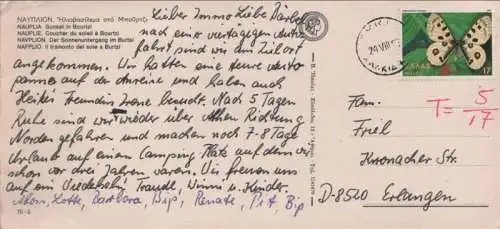 ΝΑΥΠΛΙΟΝ. Ἡλιοβασίλεμα στὸ Μπούρτζι
NAUPLIA. Sunset in Bourtzi
NAUPLIE. Coucher du soleil à Bourtzi
NAVPLION. Der Sonnenuntergang im Burtzi
NAPPLIO. Il tramonto del sole a Burtzi
Lieber Immo Liebe Bärbel
nach einer viertägigen Auto
fahrt sind wir am Zielort
angekommen. Wir hatten eine teure Auto
panne auf der Anreise und haben auch
Heikes Freundin Irene besucht. Nach 5 Tagen
Ruhe sind wir wieder über Athen Richtung
Norden gefahren und machen noch 7-8 Tage
Urlaub auf einem Camping Platz auf dem wir
schon vor drei Jahren waren. Wir freuen uns
auf ein Wiedersehn, Traudl, Winni u. Kinder.
Lotte, Barbara, Bip, Renate, Pit, Bip
ΕΛΛΑΣ
HELLAS
17
T= 5/17
Fam.
Friel
Kronacher Str.
D-8520 Erlangen